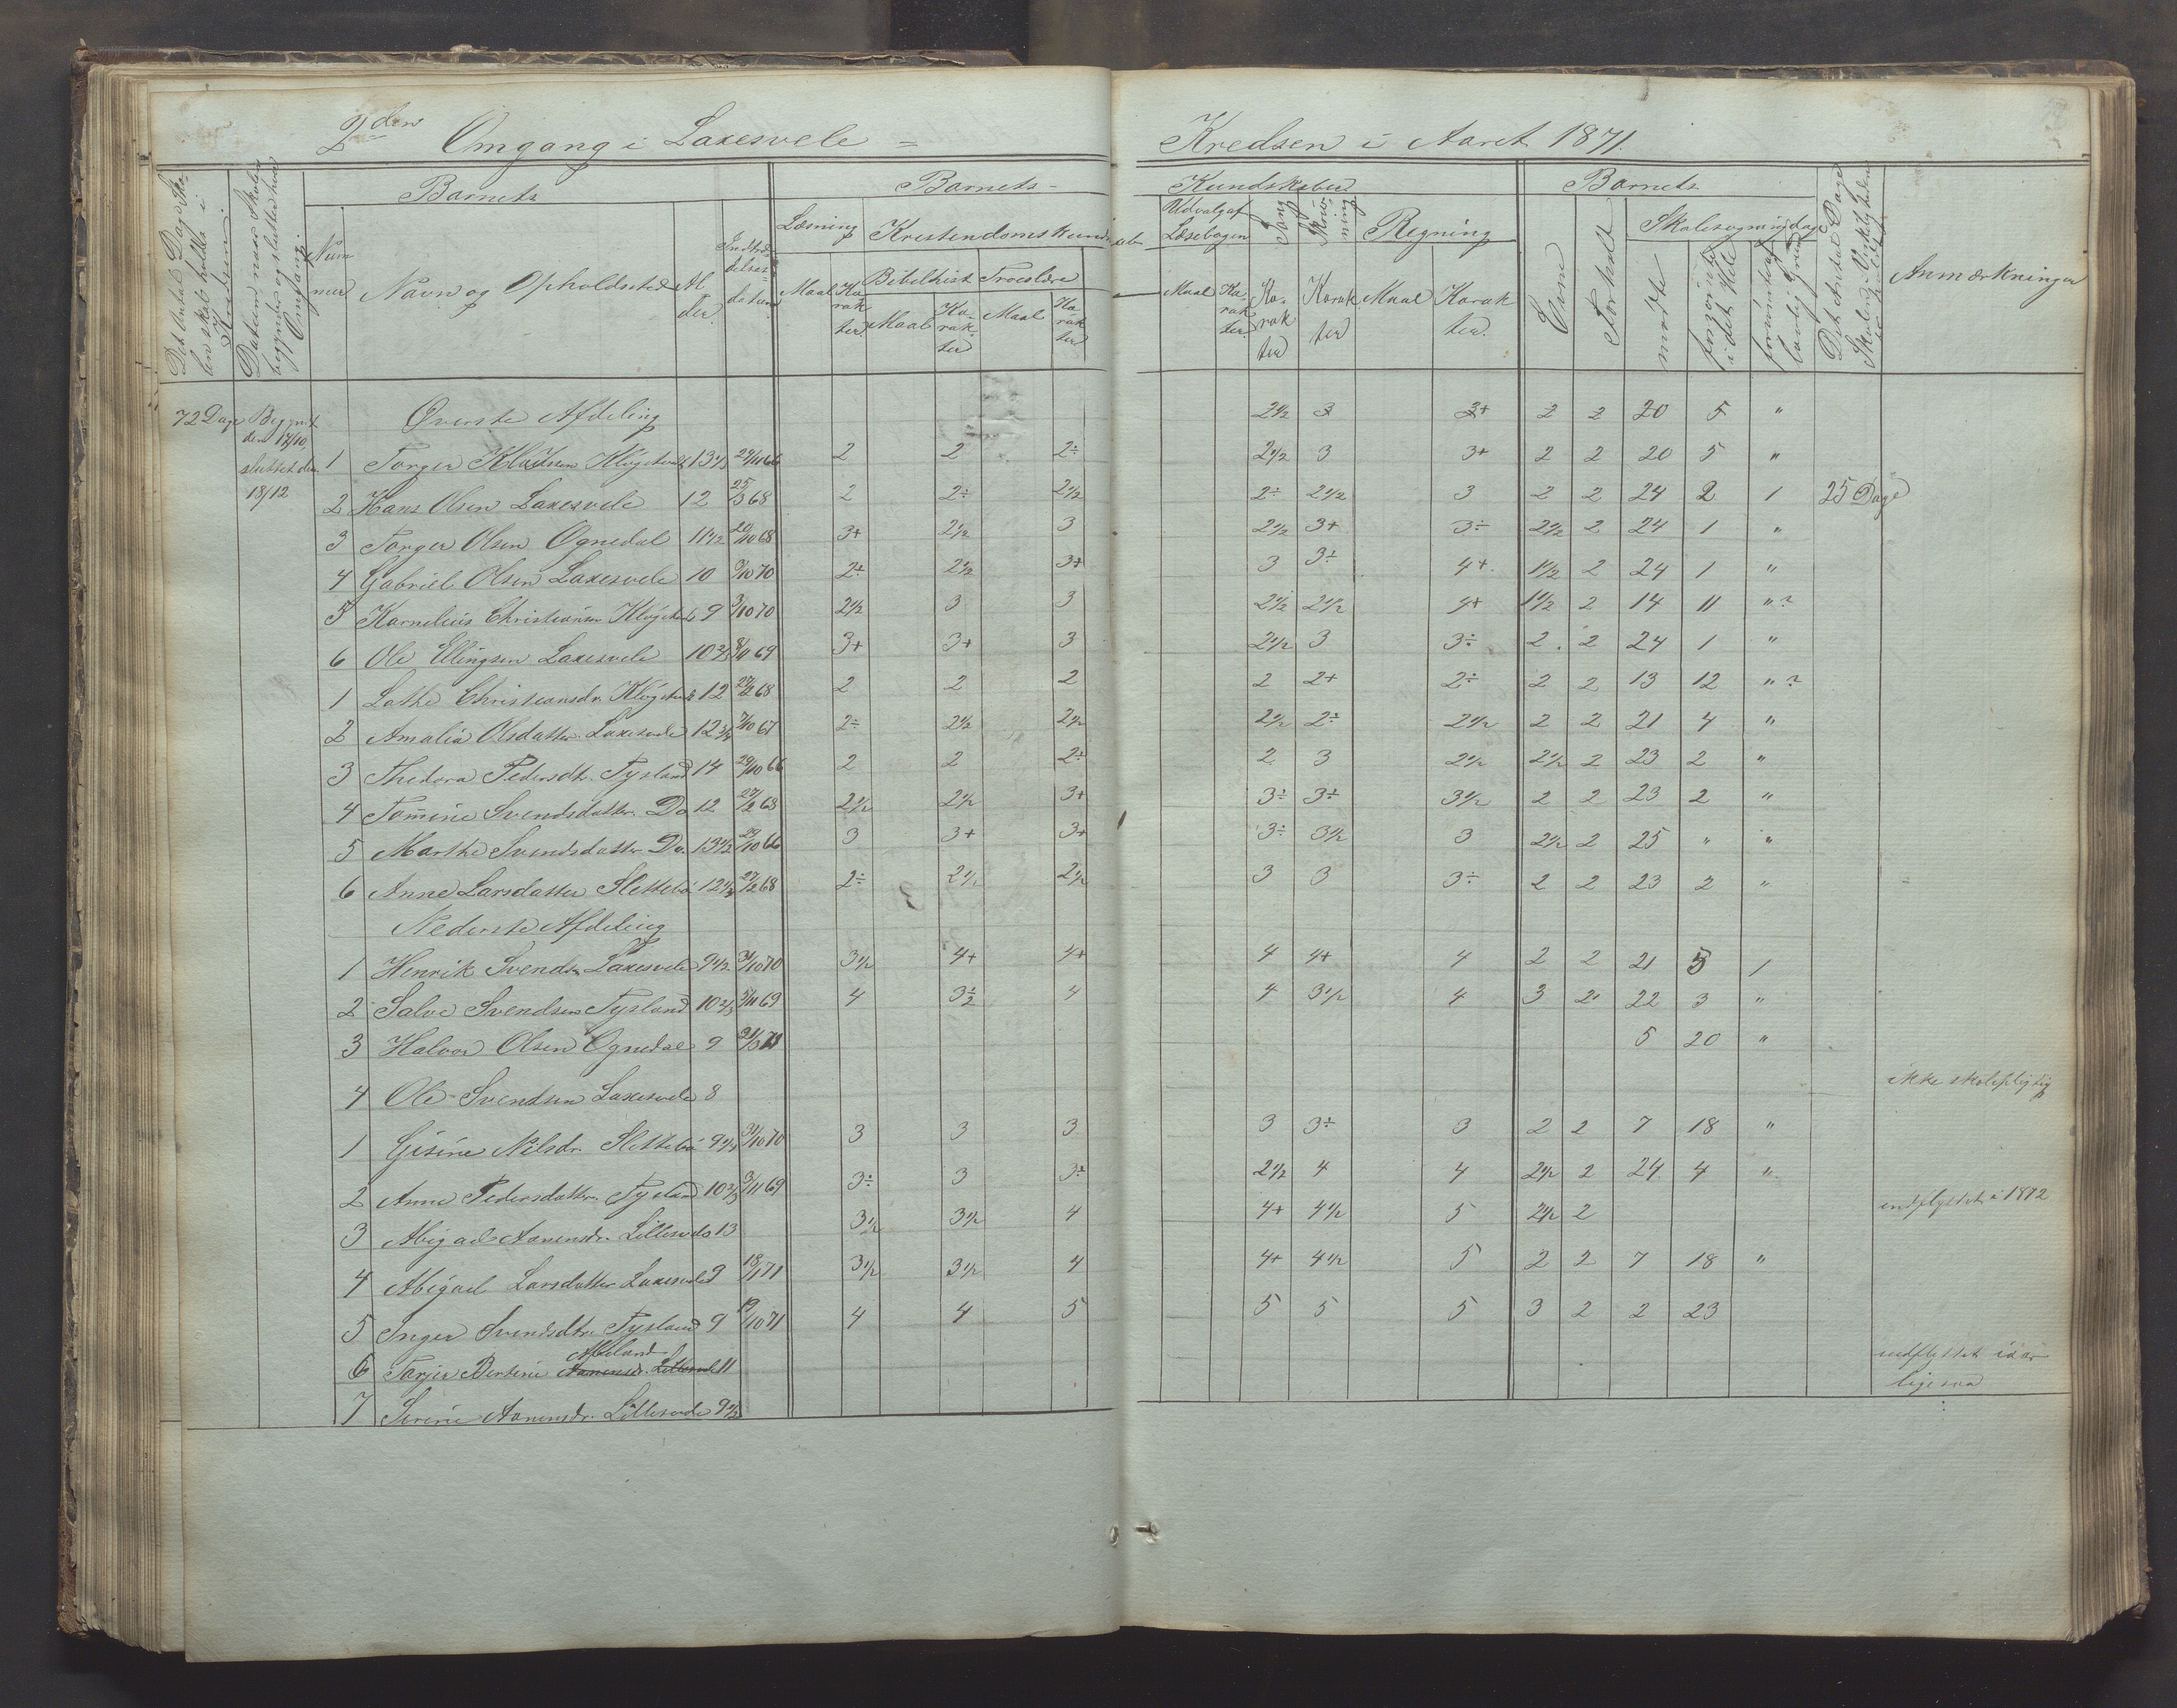 2den Omgang i Laxesvele = Kredsen i Aaret 1871.
Det Antal Dage Skolen skal holdes i Kredsen.
Datum, naar Skolen begyndte og sluttede hver Omgang.
Barnets
Nummer
Navn og Opholdssted
Alder.
Indtrædelsesdatum
Barnets Kundskaber
Læsning
Kristendomskundskab
Bibelhist.
Troeslære
Maal Karakter. Maal Karakter Maal Karakter
Udvalg af Læsebogen
Sang
Skrivning
Regning
Maal Karakter. Karakter Karakter Maal Karakter.
Barnets
Evne
Forhold
Skolesøgningsdage
mødte
forsømte i det Hele
forsømte af lovlig Grund
Det Antal Dage Skolen i Virkeligheden
Anmærkninger
72 Dage Begyndt den 17/10, sluttet den 18/12
Øverste Afdeling 2 1/2 3 3+ 2 2 20 5 "
1 Torger Klausen Kløgetvedt 13 1/3 24/11 66 2 2 2÷ 2 1/2 3 3+ 2 2 20 5 "
2 Hans Olsen Laxesvele 12 25/3 68 2 2÷ 2 1/2 2÷ 2 1/2 3 2 2 24 2 1 25 Dage
3 Torger Olsen Ognedal 11 1/2 20/10 68 3+ 2 1/2 3 2 1/2 3+ 3÷ 2 1/2 2 24 1 "
4 Gabriel Olsen Laxesvele 10 /10 70 2÷ 2 1/2 3+ 3 3÷ 4+ 1 1/2 2 24 1 "
5 Kornelius Christiansen 9 3/10 70 2 1/2 3 3 2 1/2 2 1/2 4+ 1 1/2 2 14 11 " ?
6 Ole Ellingsen Laxesvele 10 2/3 /11 69 3+ 3+ 3 2 1/2 3 3÷ 2 2 24 1 "
1 Lothe Christiansdr. 12 27/2 68 2 2 2 2 2+ 2÷ 2 2 13 12 " ?
2 Amalia Olsdatter Laxesvele 12 3/4 /10 67 2÷ 2 1/2 2 1/2 2 1/2 2÷ 2 1/2 2 2 21 4 "
3 Thedora Pedersdtr. Tysland 14 29/10 66 2 2 2÷ 2 3 2 1/2 2 1/2 2 23 2 "
4 Tomine Svendsdatter Do 12 27/2 68 2 1/2 2 1/2 3+ 3÷ 3÷ 3 1/2 2 2 23 2 "
5 Marthe Svendsdattr. Do. 13 1/2 29/10 66 3 3+ 3+ 3÷ 3 1/2 3 2 1/2 2 25 " "
6 Anne Larsdatter Slettebø 12 1/4 27/2 68 2÷ 2 1/2 2 1/2 3 3 3÷ 2 2 23 2 "
Nederste Afdeling
1 Henrik Svends. Laxesvele 9 1/2 31/10 70 3 1/2 4+ 4+ 4 4+ 4 2 2 21 5 1
2 Salve Svendsen Tysland 10 2/3 5/11 69 4 3 1/2 4 4 3 1/2 4 3 2 22 3 "
3 Halvor Olsen Ognedal 9 5 20 "
4 Ole Svendsen Laxesvele 8 ikke skolepligtig
1 Gisine Nilsdr. Slettebø 9 1/4 31/10 70 3 3 3 3 3÷ 3 2 2 7 18 "
2 Anne Pedersdatter Tysland 10 2/3 3/11 69 3÷ 3 3÷ 2 1/2 4 4 2 1/2 2 24 4 "
3 Abigael Aanensdr. Lillesvele 13 3 1/2 3 1/2 4 4+ 4 1/2 5 2 1/2 2 indflyttet i 1872
4 Abigael Larsdatter Laxesvele 9 18/1 71 3 1/2 3 1/2 4 4+ 4 1/2 5 2 2 7 18 "
5 Inger Svendsdtr. Tysland 9 19/10 71 4 4 5 5 5 5 3 2 2 23
6 Torger Bertine Aanensdr. Lillesvele 11 indflyttet i aar
7 Serine Aanensdr. Lillesvele 9 1/2 ligesaa